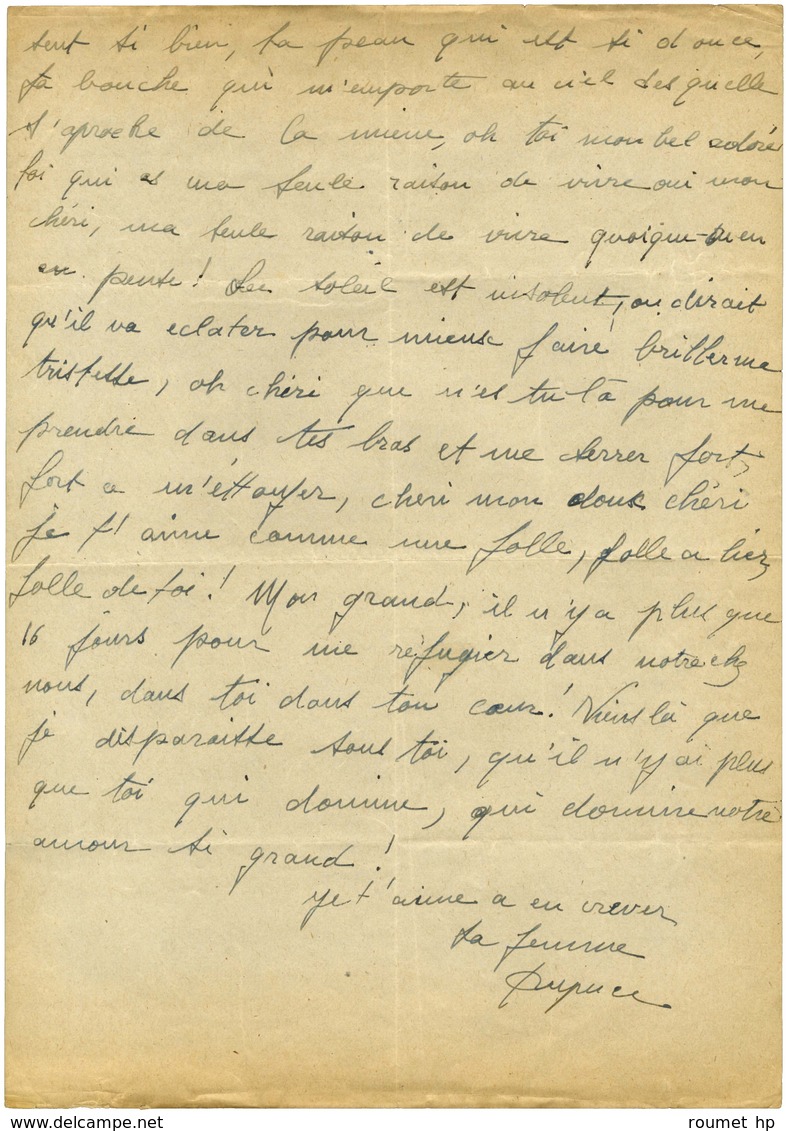 sent si bien, ta peau qui est si douce,
ta bouche qui m'emporte au ciel des quelle
s'aproche de la mienne, oh toi mon bel adoré
toi qui es ma seule raison de vivre oui mon
chéri, ma seule raison de vivre quoique tu en
en pense! Le soleil est insolent, on dirait
qu'il va eclater pour mieux faire brillerma
tristesse, oh chéri que n'es tu là pour me
prendre dans tes bras et me serrer fort,
fort a m'éttoufer, cheri mon doux chéri
je t'aime comme une folle, folle a lier,
folle de toi! Mon grand, il n'y a plus que
16 jours pour me réfugier dans notre chez
nous, dans toi dans ton cœur! Viens là que
je disparaisse sous toi, qu'il n'y ai plus
que toi qui domine, qui domine notre
amour si grand!
Je t'aime a en crever
ta femme
www.delcampe.net
roumet hp